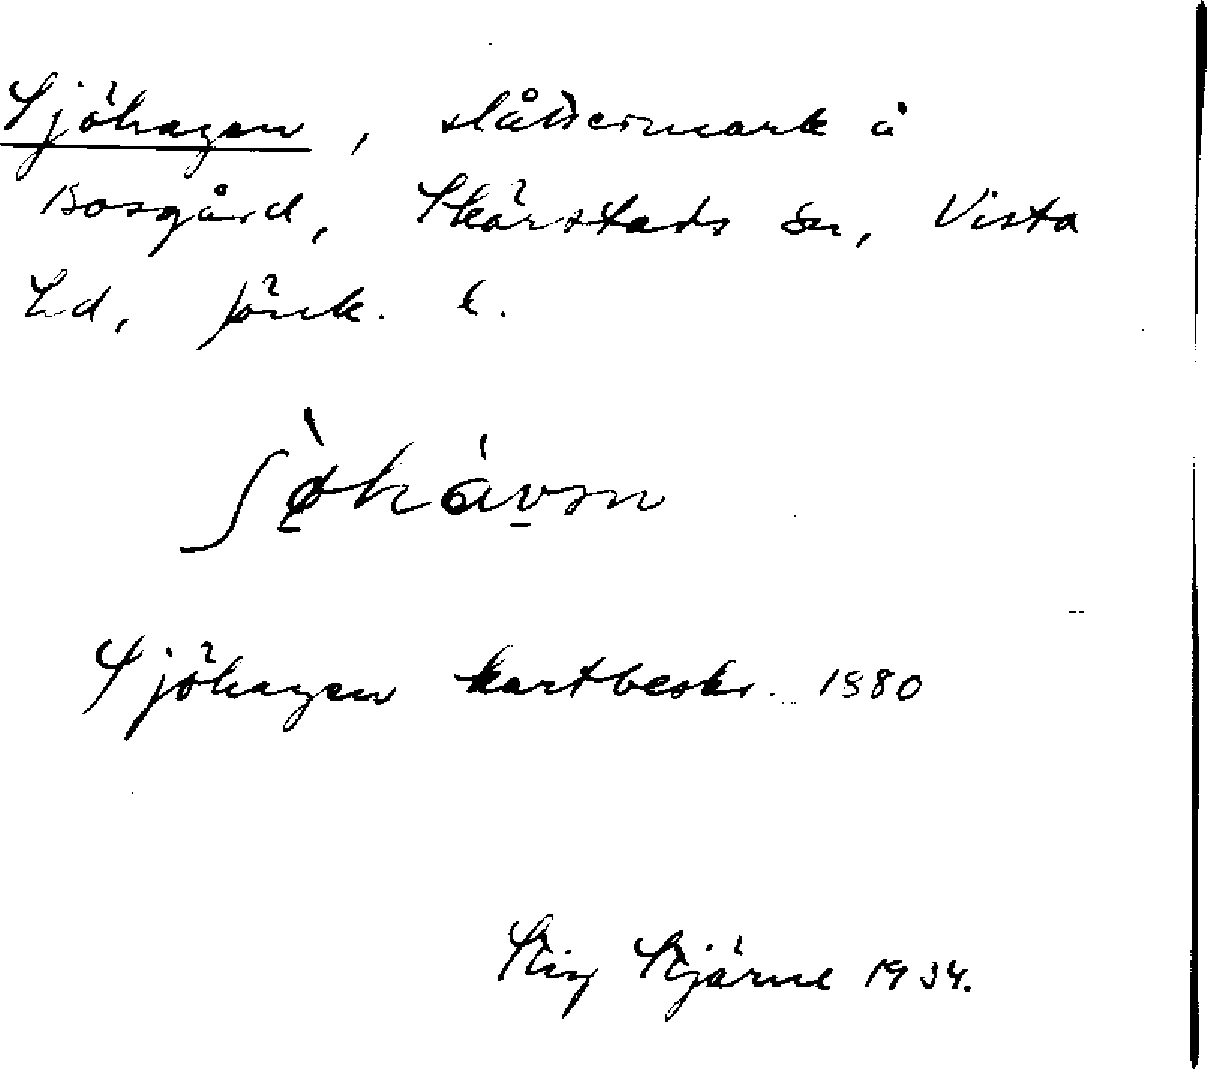 Sjöhagen, slåttermark å
Bosgård, Skärstads sn, Vista
hd, Jönk. l.
Sjöhagen kartbeskr. 1880
Stig Stjärne 1934.